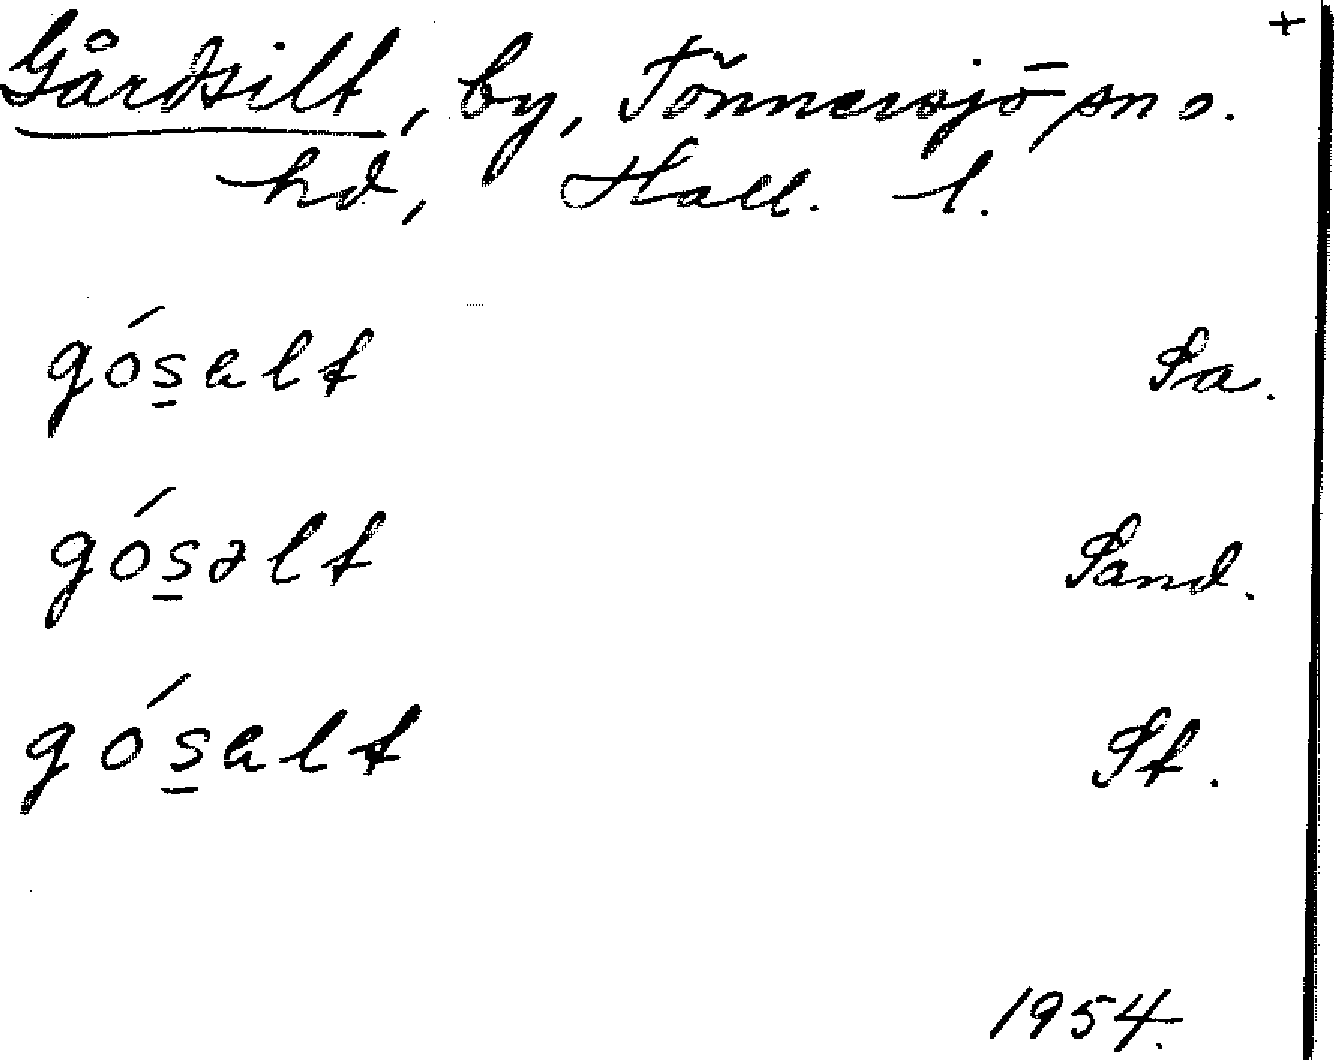 +
Gårdsilt, by, Tönnersjö sn o.
hd, Hall. l.
gós̲alt Sa.
gós̲əlt Sand.
gós̲alt St.
1954.